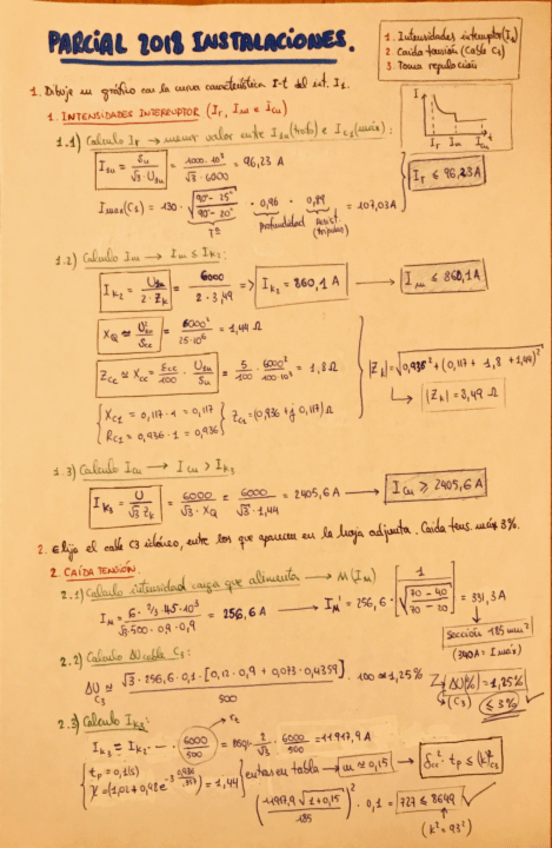 PARCIAL 2018 INSTALACIONES.
1. Intensidades interruptor (I₁)
2. Caída tensión (Cable C₃)
3. Toma regulación
1. Dibuje un gráfico con la curva característica I-t del int. I₁.
1. INTENSIDADES INTERRUPTOR (Ir, Im e Icu)
I
Ir Im Icu t
1.1) Calculo Ir → menor valor entre I1n(trafo) e Ic1(máx):
I1n = Sn / √3·U1n = 1000·10³ / √3·6000 = 96,23 A
Imax(C1) = 130 · √(90-25 / 90-20) · 0,96 · 0,89 = 107,03 A
Tª profundidad Resist. (tripular)
Ir ≤ 96,23 A
1.2) Calculo Im → Im ≤ Ik2:
Ik2 = U1n / 2·Zk = 6000 / 2·3,49 => Ik2 = 860,1 A → Im ≤ 860,1 A
XQ ≃ U²1n / Scc = 6000² / 25·10⁶ = 1,44 Ω
Zcc ≃ Xcc = εcc / 100 · U²1n / Sn = 5 / 100 · 6000² / 100·10³ = 1,8 Ω
|Zk| = √(0,936² + (0,117 + 1,8 + 1,44)²)
↳ |Zk| = 3,49 Ω
Xc1 = 0,117·1 = 0,117
Rc1 = 0,936·1 = 0,936
Zc1 = (0,936 + j 0,117) Ω
1.3) Calculo Icu → Icu > Ik3
Ik3 = U / √3 Zk = 6000 / √3·XQ = 6000 / √3·1,44 = 2405,6 A → Icu ≥ 2405,6 A
2. Elija el cable C3 idóneo, entre los que aparecen en la hoja adjunta. Caída tens. máx 3%.
2. CAÍDA TENSIÓN.
2.1) Calculo intensidad carga que alimenta → M (IM)
IM = 6·2/3·45·10³ / √3·500·0,9·0,9 = 256,6 A → IM' = 256,6 · [1 / √(70-40 / 70-20)] = 331,3 A
Sección 185 mm²
(340A = Imáx)
2.2) Calculo ΔU cable C3:
ΔU C3 ≃ √3·256,6·0,1·[0,12·0,9 + 0,073·0,4359] / 500 · 100 = 1,25%
ΔU(%) = 1,25%
(C3) ≤ 3% ✓
2.3) Calculo Ik3:
rt
Ik3 = Ik2 · (6000 / 500) = 860,1 · 2 / √3 · 6000 / 500 = 11917,9 A
tp = 0,1(s)
entras en tabla → m ≃ 0,15 → δcc² · tp ≤ (k)²c3
(11917,9 √(1+0,15) / 185)² · 0,1 = 727 ≤ 8649 ✓
(k² = 93²)